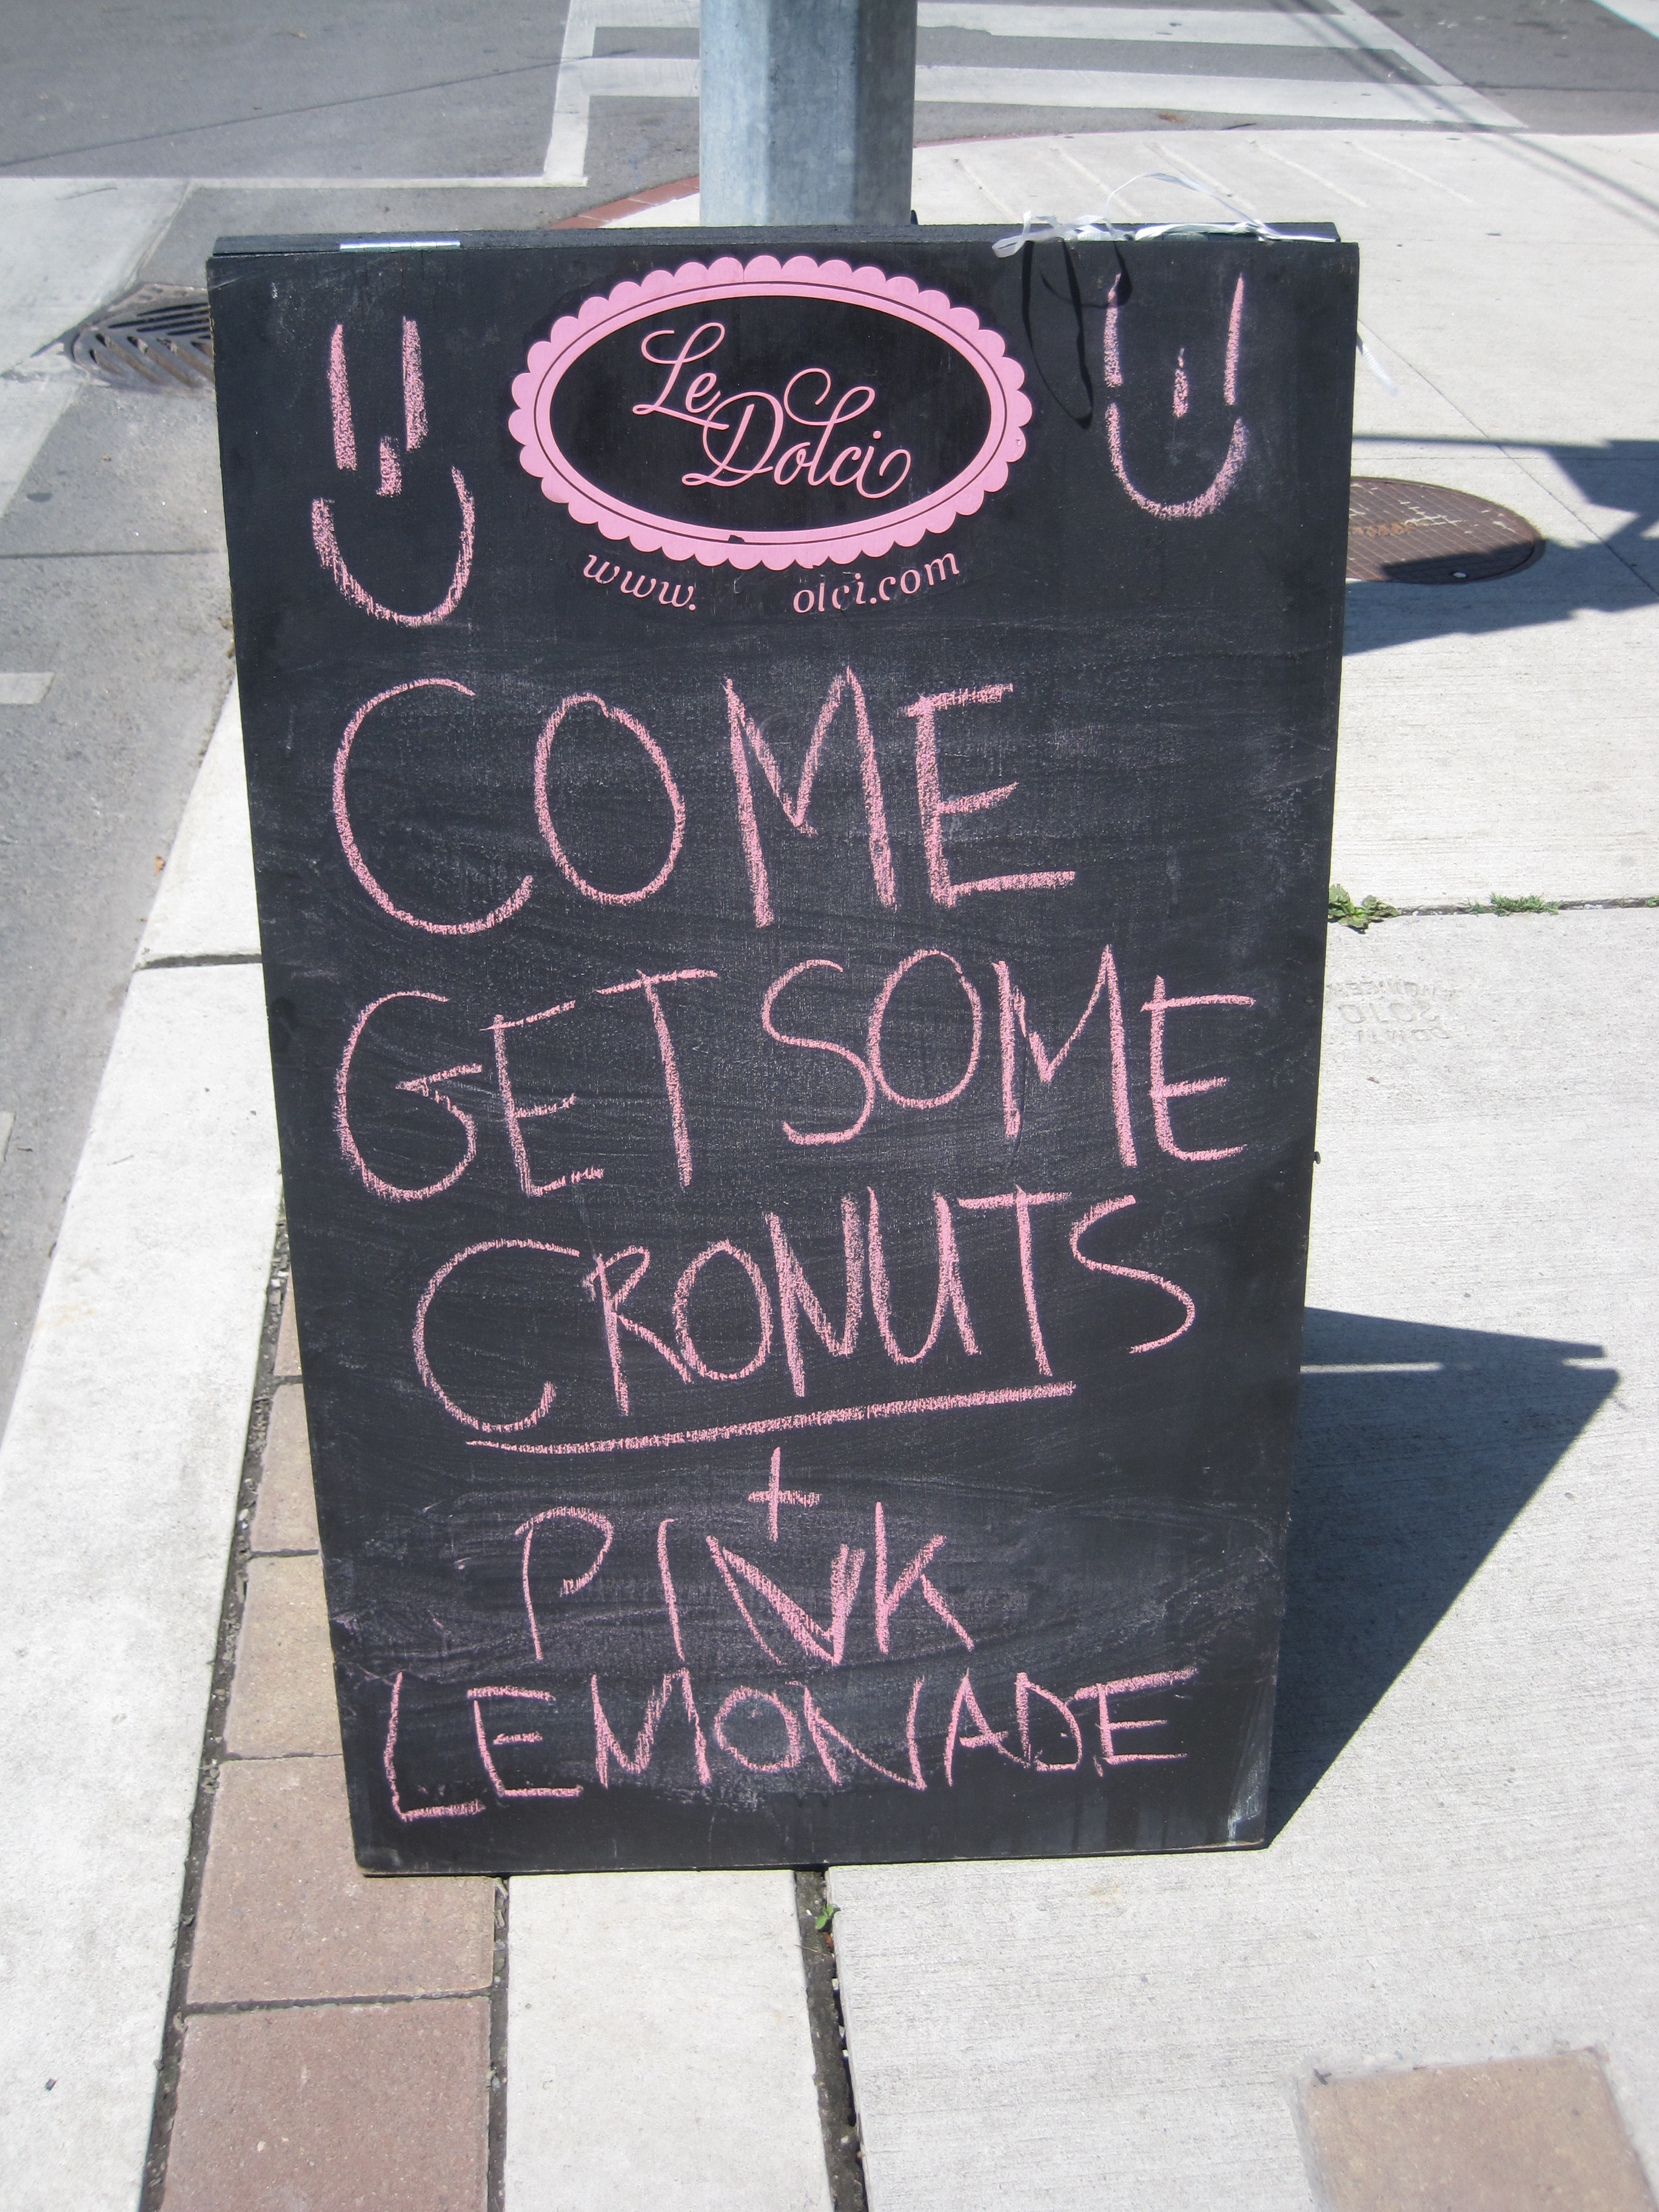 Le
Dolci
www. olci.com
COME
GET SOME
CRONUTS
+
PINK
LEMONADE